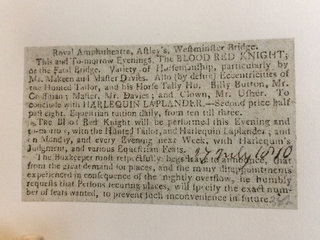 Royal Amphitheatre, Astley's, Westminster Bridge.
This and To-morrow Evenings, The BLOOD RED KNIGHT;
or the Fatal Bridge. Variety of Horsemanship, particularly by
Mr. Makeen and Master Davies. Also (by desire) Eccentricities of
the Hunted Tailor, and his Horse Tally Ho. Billy Button, Mr.
Master, Mr. Davies; and Clown, Mr. Usher. To
conclude with HARLEQUIN LAPLANDER.—Second price half-
past eight. Equestrian tuition daily, from ten till three.
The Blood Red Knight will be performed this Evening and
to-morrow, with the Hunted Tailor, and Harlequin Laplander; and
on Monday, and every Evening next Week, with Harlequin's
Judgment, and various Equestrian Feats.
The Boxkeeper most respectfully begs leave to announce, that
from the great demand for places, and the many disappointments
experienced in consequence of the nightly overflow, he humbly
requests that Persons securing places, will specify the exact num-
ber of seats wanted, to prevent such inconvenience in future.
27 July 1810